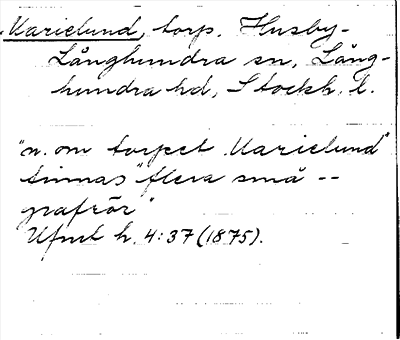 Marielund, torp. Husby-
Långhundra sn, Lång-
hundra hd, Stockh. l.
"n. om torpet Marielund"
finnas "flera små --
grafrör"
Ufmt h. 4:37 (1875).